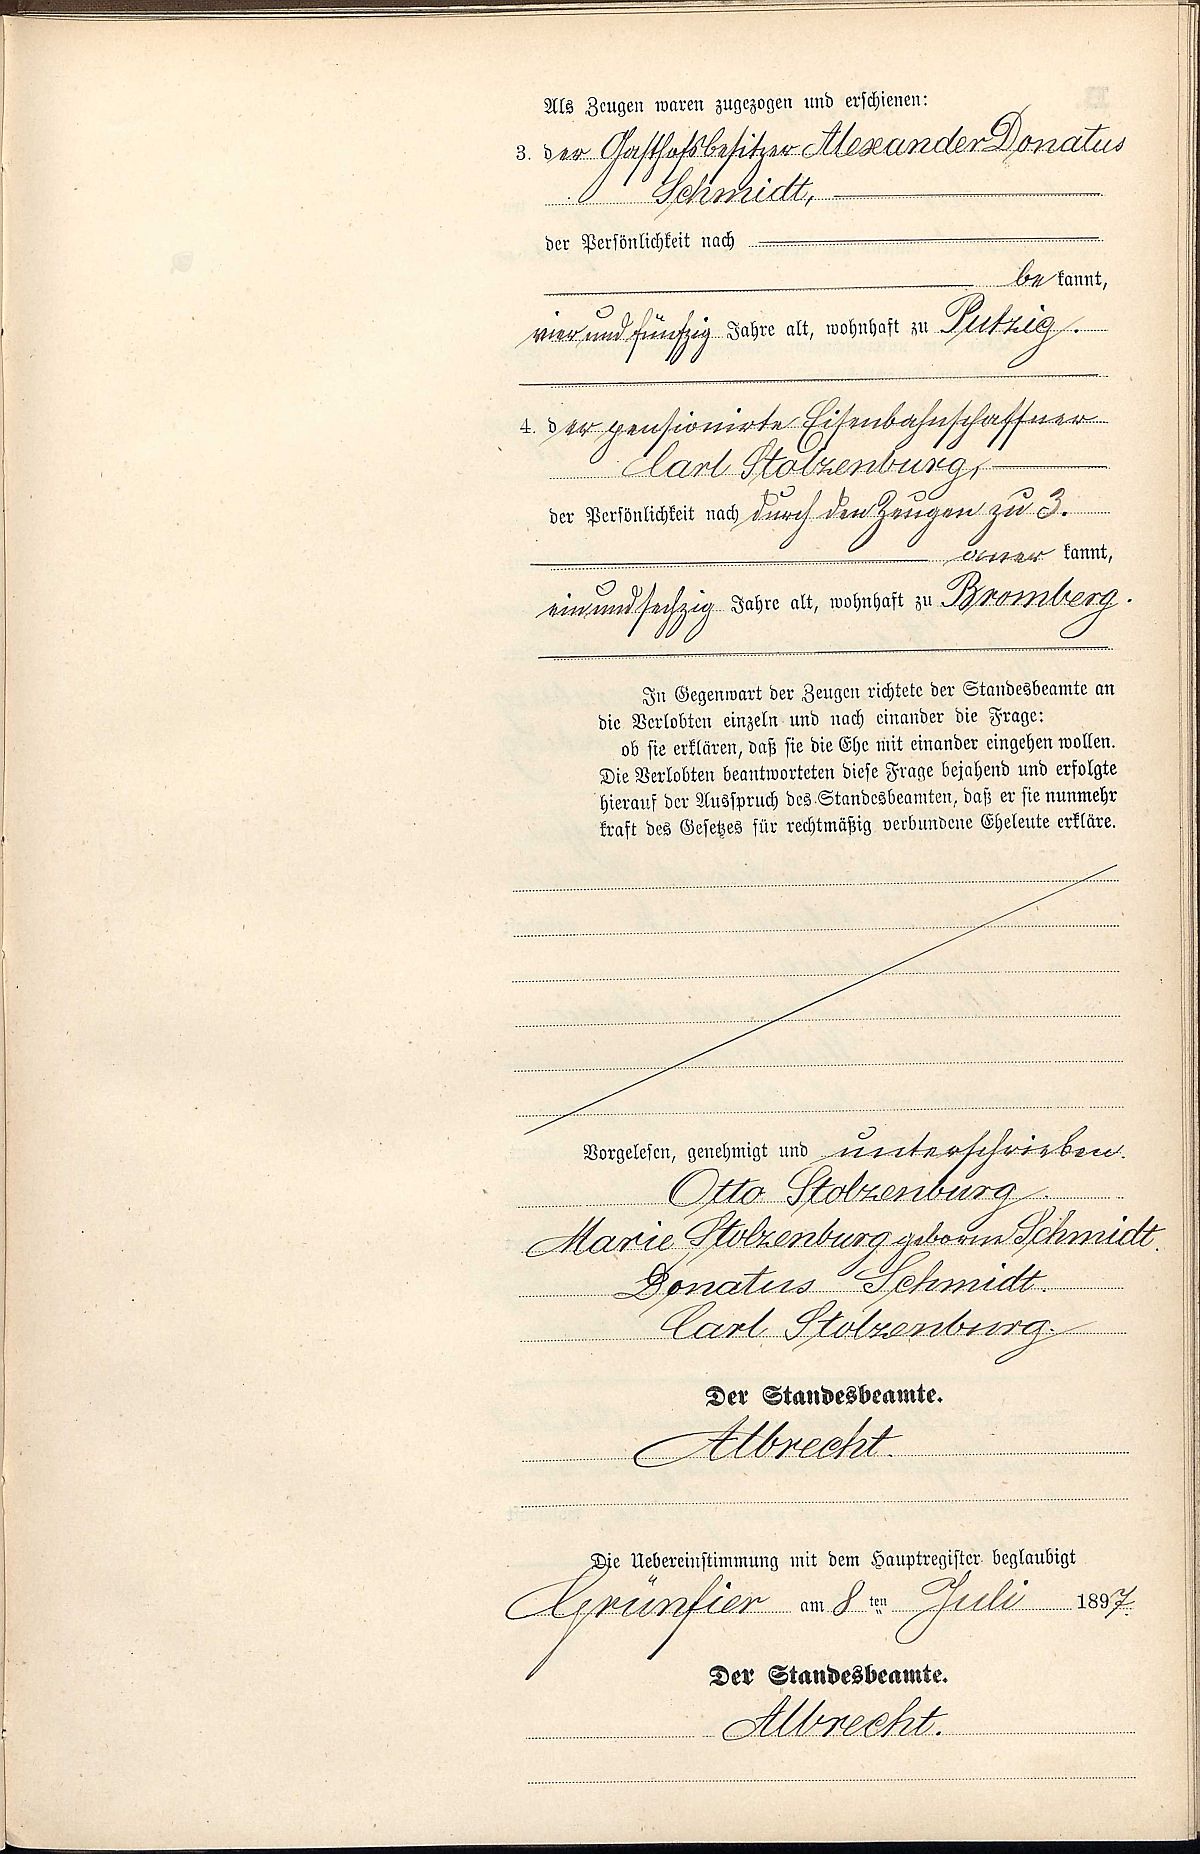 Als Zeugen waren zugezogen und erschienen:
3. der Gasthofsbesitzer Alexander Donatus
Schmidt,
der Persönlichkeit nach
be kannt,
vier und fünfzig Jahre alt, wohnhaft zu Putzig.
4. der pensionirte Eisenbahnschaffner
Carl Stolzenburg,
der Persönlichkeit nach durch den Zeugen zu 3.
aner kannt,
ein und sechzig Jahre alt, wohnhaft zu Bromberg.
In Gegenwart der Zeugen richtete der Standesbeamte an
die Verlobten einzeln und nach einander die Frage:
ob sie erklären, daß sie die Ehe mit einander eingehen wollen.
Die Verlobten beantworteten diese Frage bejahend und erfolgte
hierauf der Ausspruch des Standesbeamten, daß er sie nunmehr
kraft des Gesetzes für rechtmäßig verbundene Eheleute erkläre.
Vorgelesen, genehmigt und unterschrieben.
Otto Stolzenburg.
Marie Stolzenburg geborne Schmidt.
Donatus Schmidt.
Carl Stolzenburg.
Der Standesbeamte.
Albrecht.
Die Uebereinstimmung mit dem Hauptregister beglaubigt
Grünfier am 8 ten Juli 1897.
Der Standesbeamte.
Albrecht.